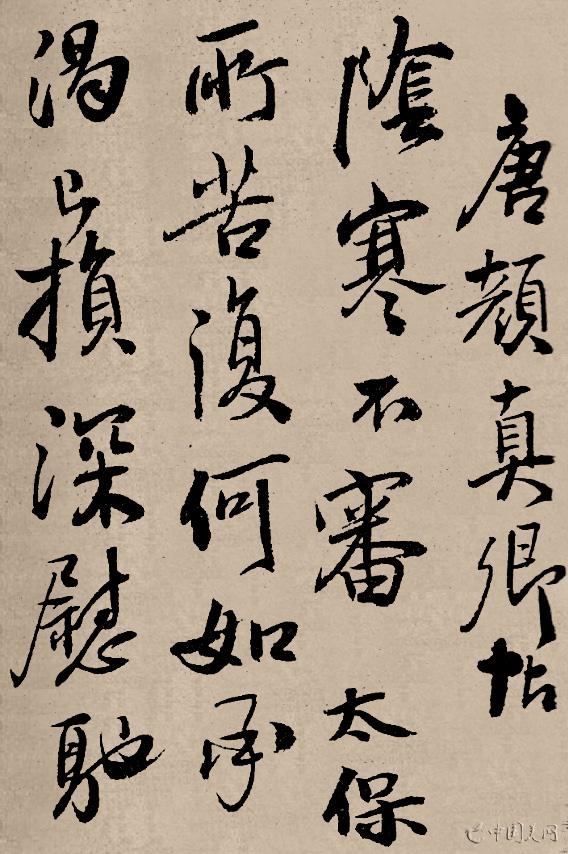 唐顔真卿帖
陰寒不審 太保
所苦復何如承
渴已損深慰馳
中国美网